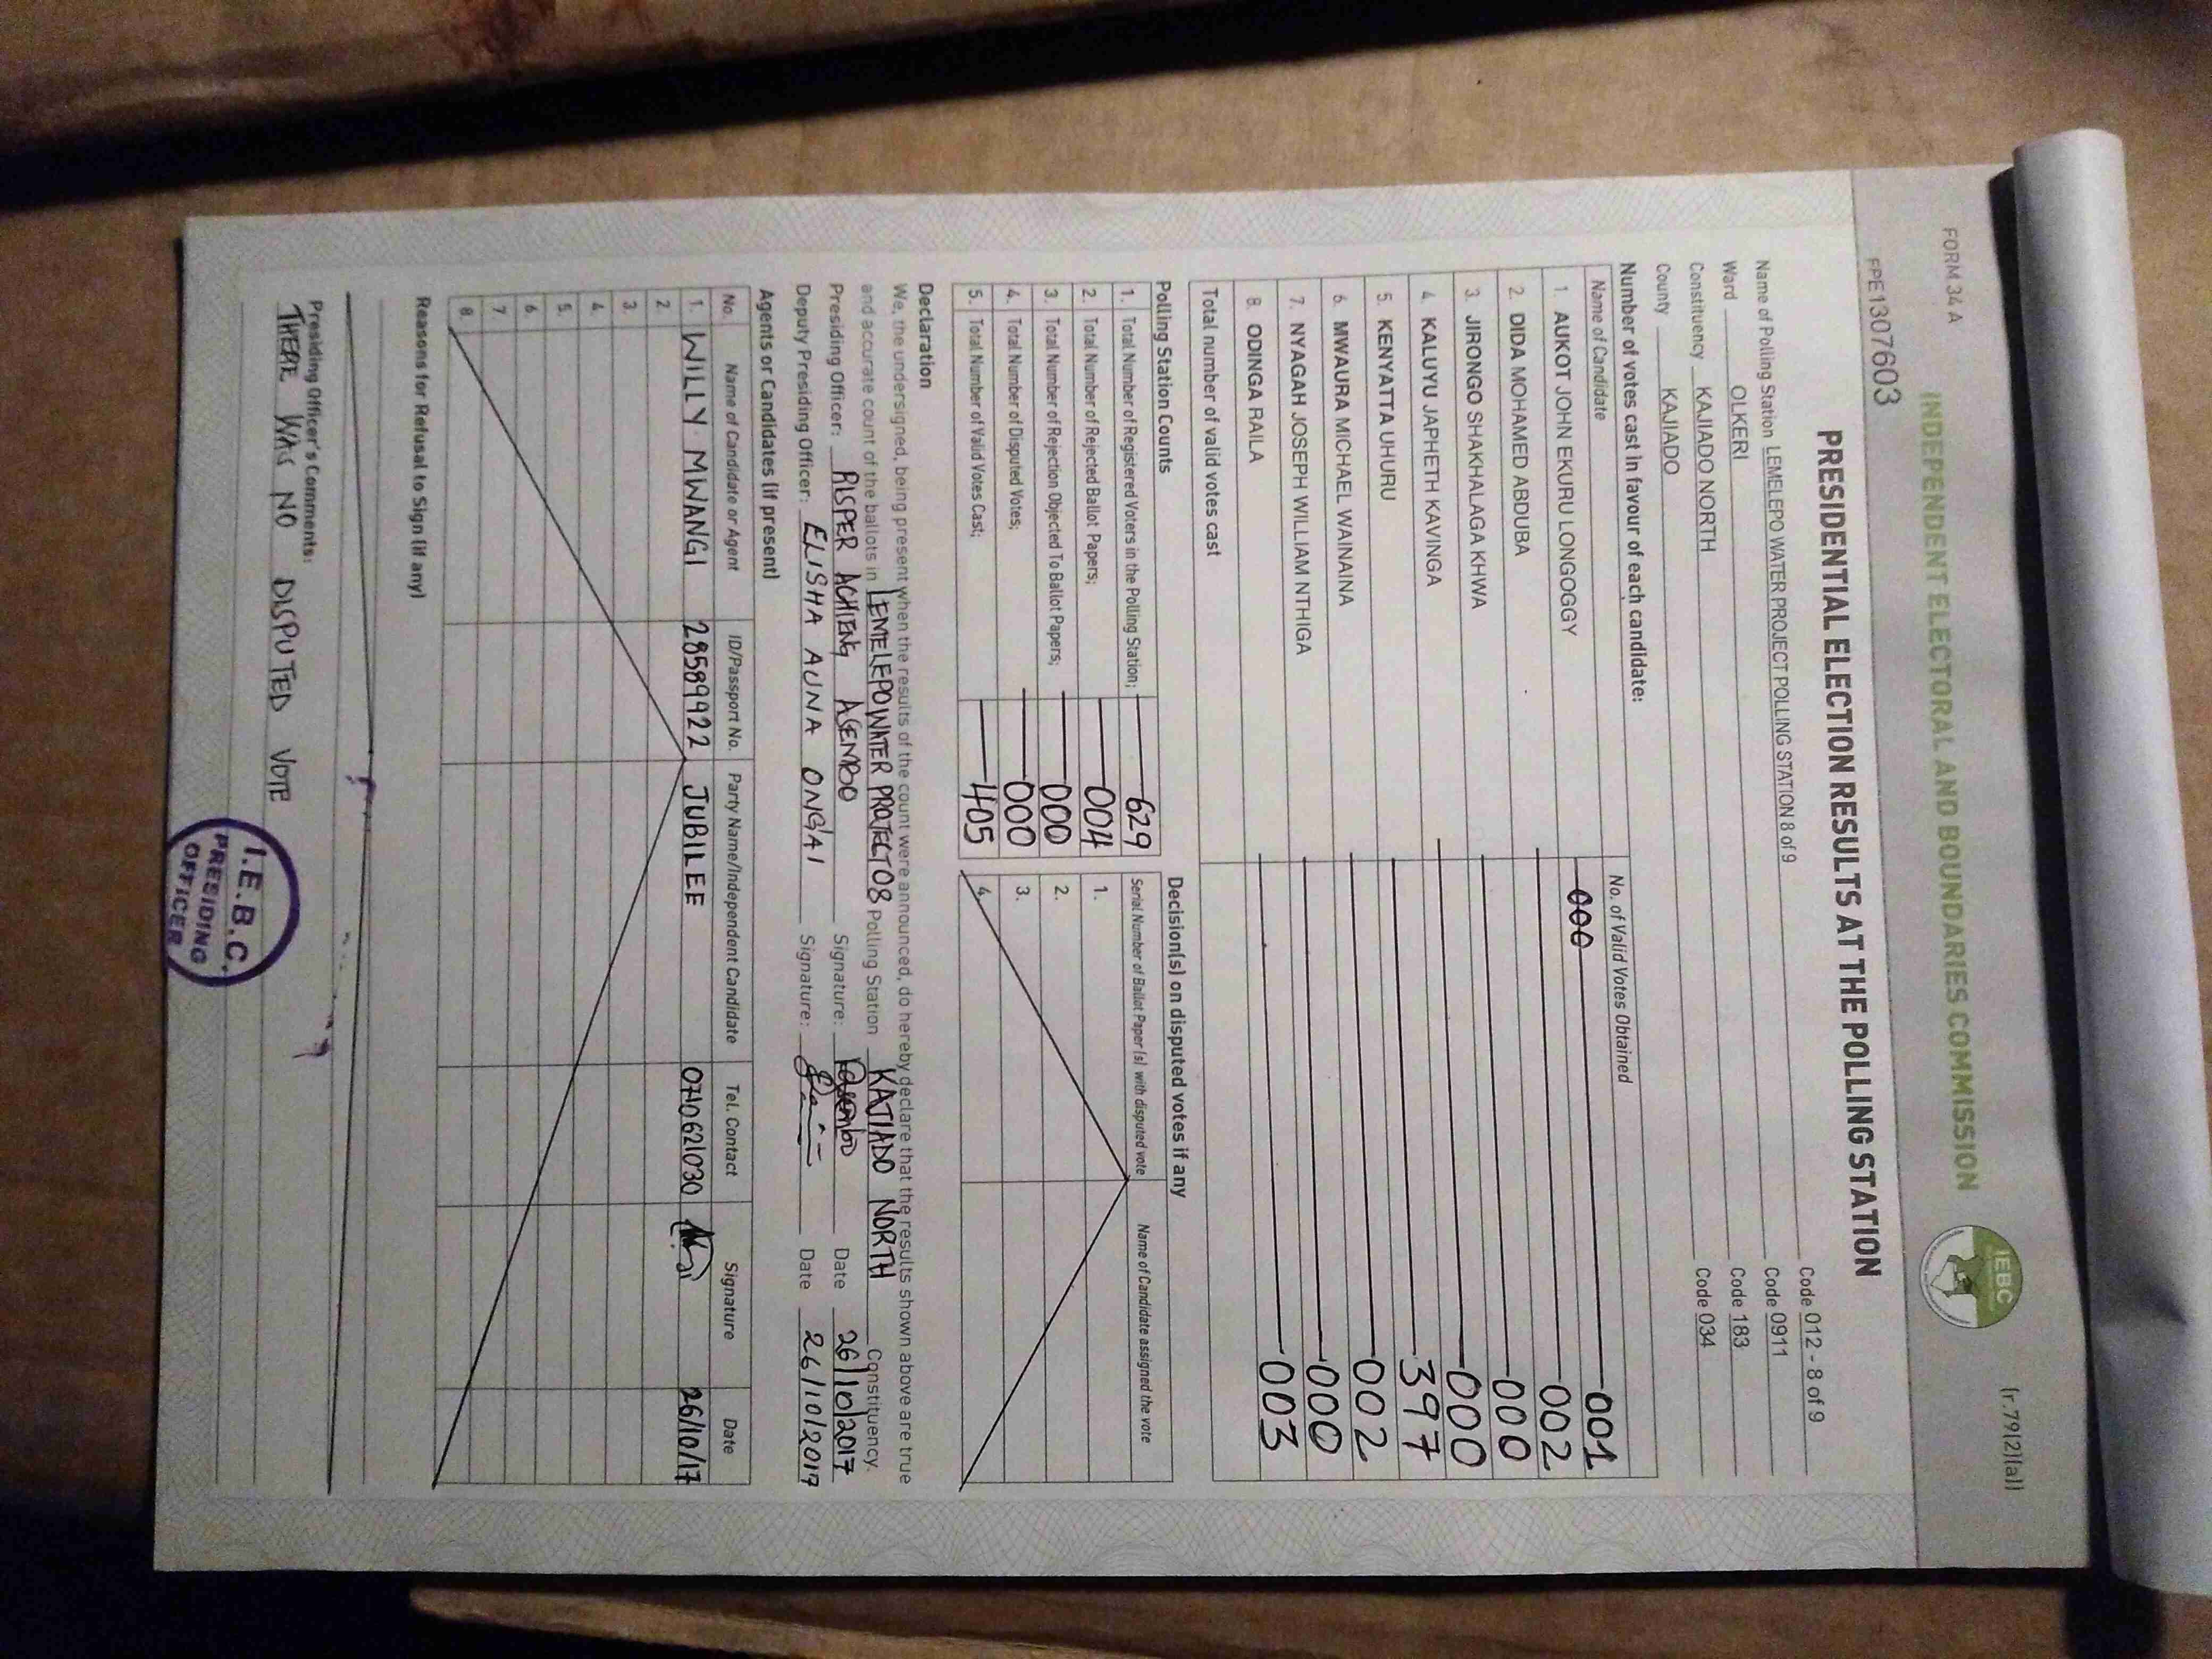 FORM 34 A
(r.79(2)(a))
INDEPENDENT ELECTORAL AND BOUNDARIES COMMISSION
IEBC
FPE1307603
PRESIDENTIAL ELECTION RESULTS AT THE POLLING STATION
Name of Polling Station LEMELEPO WATER PROJECT POLLING STATION 8 of 9 Code 012 - 8 of 9
Ward OLKERI Code 0911
Constituency KAJIADO NORTH Code 183
County KAJIADO Code 034
Number of votes cast in favour of each candidate:
Name of Candidate No. of Valid Votes Obtained
1. AUKOT JOHN EKURU LONGOGGY 000 001
2. DIDA MOHAMED ABDUBA 002
3. JIRONGO SHAKHALAGA KHWA 000
4. KALUYU JAPHETH KAVINGA 000
5. KENYATTA UHURU 397
6. MWAURA MICHAEL WAINAINA 002
7. NYAGAH JOSEPH WILLIAM NTHIGA 000
8. ODINGA RAILA 003
Total number of valid votes cast
Polling Station Counts
1. Total Number of Registered Voters in the Polling Station; 629
2. Total Number of Rejected Ballot Papers; 004
3. Total Number of Rejection Objected To Ballot Papers; 000
4. Total Number of Disputed Votes; 000
5. Total Number of Valid Votes Cast; 405
Decision(s) on disputed votes if any
Serial Number of Ballot Paper (s) with disputed vote Name of Candidate assigned the vote
1.
2.
3.
4.
Declaration
We, the undersigned, being present when the results of the count were announced, do hereby declare that the results shown above are true
and accurate count of the ballots in LEMELEPO WATER PROJECT 08 Polling Station KAJIADO NORTH Constituency.
Presiding Officer: RISPER ACHIENG AGEMBO Signature: Date 26/10/2017
Deputy Presiding Officer: ELISHA AUNA ONG'AI Signature: Date 26/10/2017
Agents or Candidates (if present)
No. Name of Candidate or Agent ID/Passport No. Party Name/Independent Candidate Tel. Contact Signature Date
1. WILLY MWANGI 28589922 JUBILEE 0710621030 26/10/17
2.
3.
4.
5.
6.
7.
8.
Reasons for Refusal to Sign (if any)
Presiding Officer's Comments:
THERE WAS NO DISPUTED VOTE
I.E.B.C.
PRESIDING
OFFICER